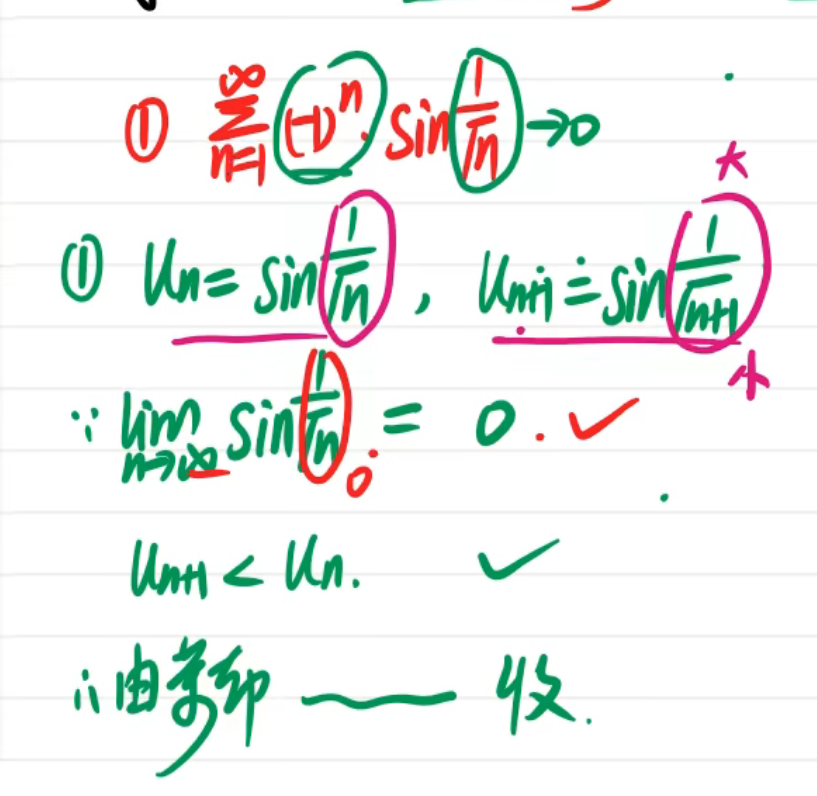 ① ∑_{n=1}^{∞} (-1)^n · sin 1/√n → 0
① Un = sin 1/√n , Un+1 = sin 1/√n+1
大
小
∵ lim_{n→∞} sin 1/√n = 0 . ✓
0
Un+1 < Un. ✓
∴ 由莱布 —— 收.